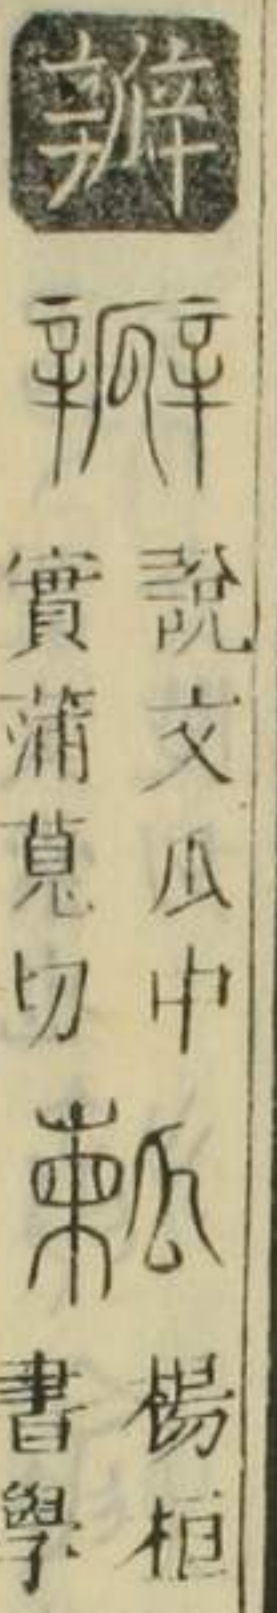 瓣
瓣
說文瓜中
實蒲莧切
楊桓
書學